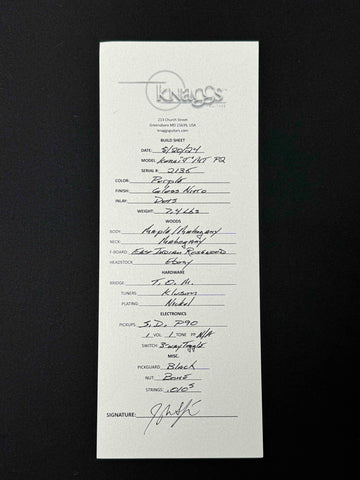 knaggs
GUITARS
213 Church Street
Greensboro MD 21639, USA
knaggsguitars.com
BUILD SHEET
DATE: 8/20/24
MODEL: Kenai T/HT P2
SERIAL #: 2135
COLOR: Purple
FINISH: Gloss Nitro
INLAY: Dots
WEIGHT: 7.4 Lbs
WOODS
BODY: Maple/Mahogany
NECK: Mahogany
F-BOARD: East Indian Rosewood
HEADSTOCK: Ebony
HARDWARE
BRIDGE: T.O.M.
TUNERS: Kluson
PLATING: Nickel
ELECTRONICS
PICKUPS: S.D. P90
1 VOL 1 TONE PP N/A
SWITCH: 3-way Toggle
MISC.
PICKGUARD: Black
NUT: Bone
STRINGS: .010s
SIGNATURE: